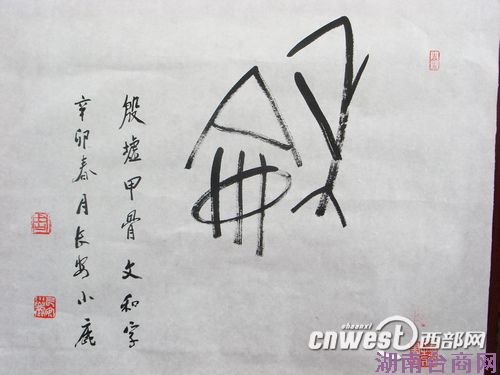 龢
殷墟甲骨文和字
辛卯春月长安小鹿
shaanxi
cnwest西部网
湖南台商网